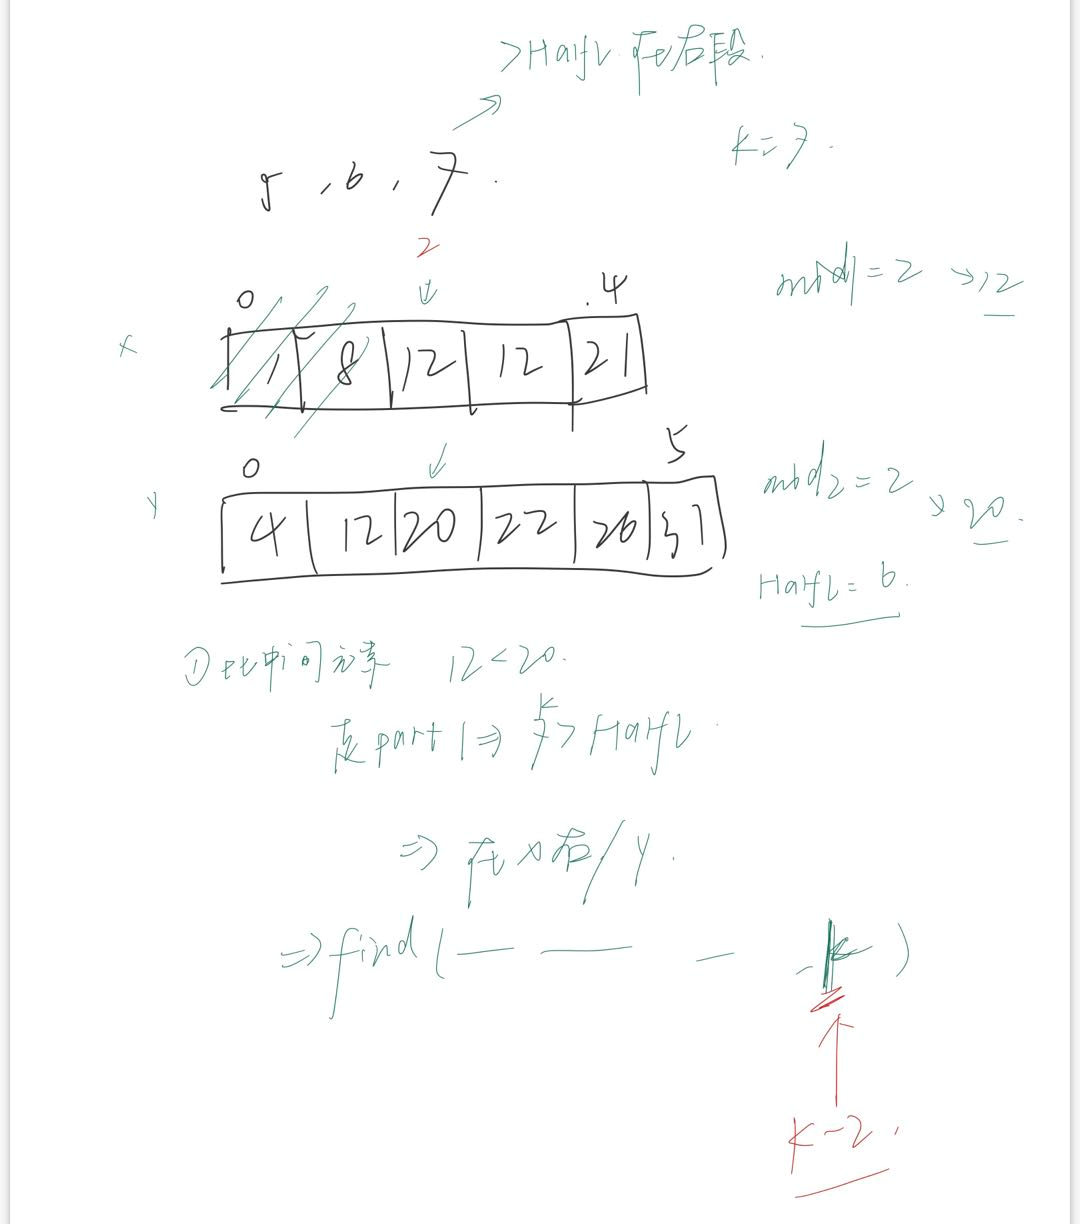 >HalfL 在右段.
K=7.
5, 6, 7.
2
mid1=2 → 12
0 .4
X
1 8 12 12 21
0 5
mid2=2 → 20.
Y
4 12 20 22 26 31
HalfL=6.
①比中间元素 12<20.
k
走part1⇒ 7>HalfL.
⇒ 在X右/Y.
⇒find(— — — .k)
K-2.